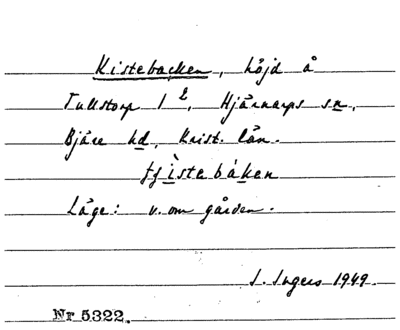 Kistebacken, höjd å
Tullstorp 1 E, Hjärnarps sn,
Bjäre hd, Krist. län.
ìstebáken
Läge: v. om gården.
I. Ingers 1949.
Nr 5322.